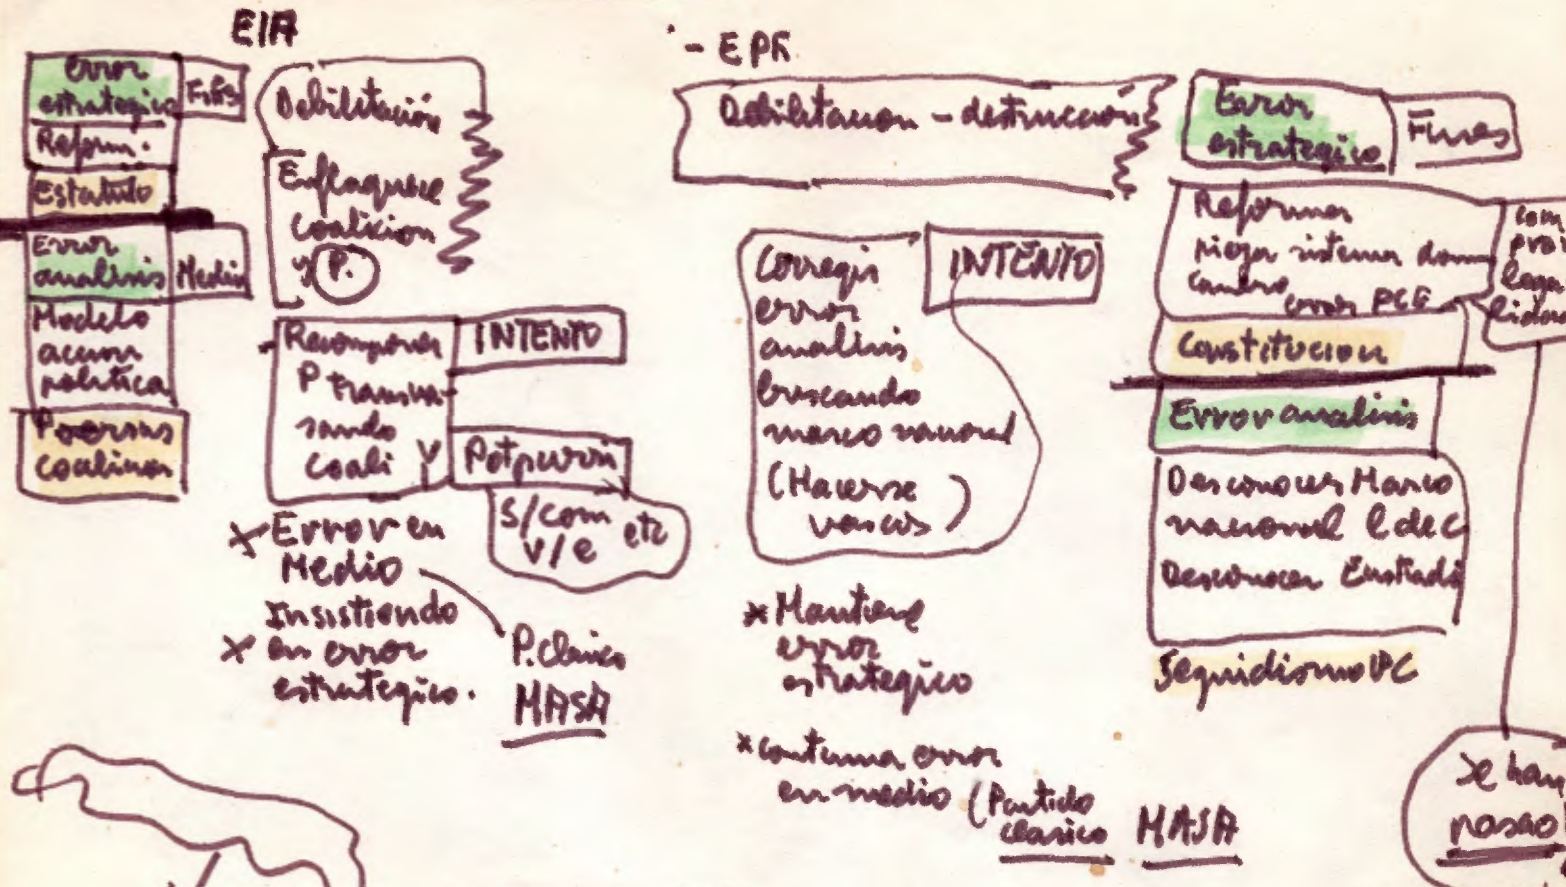 EIA
error
estrategico
Fines
Reform.
Estatuto
Error
analisis
Medio
Modelo
accion
politica
coalicion
Debilitación
Enflaquece
Coalicion
y P.
Recomponer
P transva
sando
Coali
INTENTO
Potpurri
S/com
V/e etc
x Error en
Medio
Insistiendo
x en error
estrategico.
P. clasico
MASA
- EPK
Debilitacion - destruccion
Corregir
error
analisis
buscando
marco nacional
(Hacerse
vascos)
INTENTO
* Mantiene
error
estrategico
* continua error
en medio (Partido
clasico MASA
Error
estrategico
Fines
Reforma
sistema dom
error PCE
Constitucion
Error analisis
Desconocer Marco
nacional l de c
Desconocer Euskadi
Seguidismo
com
lega
lidad
Se han
pasao